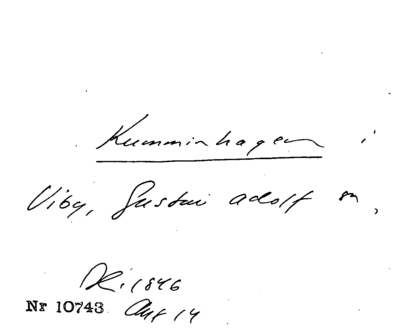 Kumminhagen i
Viby, Gustav Adolf sn,
1846
Nr 10743